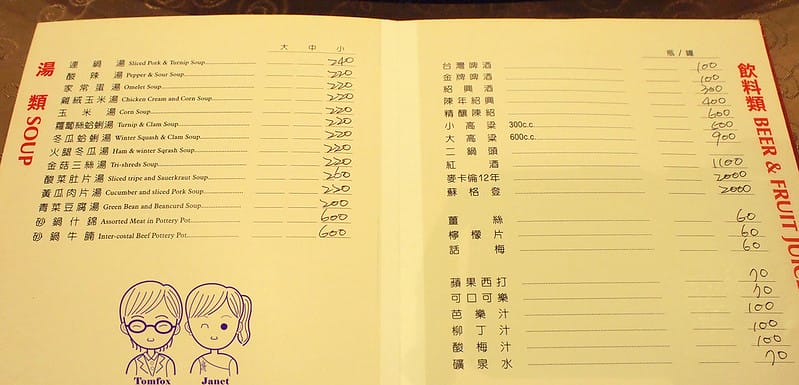 湯類 SOUP
大 中 小
連鍋湯 Sliced Pork & Turnip Soup 240
酸辣湯 Pepper & Sour Soup 220
家常蛋湯 Omelet Soup 220
雞絨玉米湯 Chicken Cream and Corn Soup 220
玉米湯 Corn Soup 220
蘿蔔絲蛤蜊湯 Turnip & Clam Soup 220
冬瓜蛤蜊湯 Winter Squash & Clam Soup 220
火腿冬瓜湯 Ham & winter Sqrash Soup 220
金菇三絲湯 Tri-shreds Soup 220
酸菜肚片湯 Sliced tripe and Sauerkraut Soup 260
黃瓜肉片湯 Cucumber and sliced Pork Soup
青菜豆腐湯 Green Bean and Beancurd Soup 200
砂鍋什錦 Assorted Meat in Pottery Pot 600
砂鍋牛腩 Inter-costal Beef Pottery Pot 600
Tomfox Janet
飲料類 BEER & FRUIT JUICE
瓶/罐
台灣啤酒 100
金牌啤酒 100
紹興酒 300
陳年紹興 400
精釀陳紹 600
小高粱 300c.c. 600
大高粱 600c.c. 900
二鍋頭
紅酒 1100
麥卡倫12年 2000
蘇格登 2000
薑絲 60
檸檬片 60
話梅 60
蘋果西打 70
可口可樂 70
芭樂汁 100
柳丁汁 100
酸梅汁 100
礦泉水 70